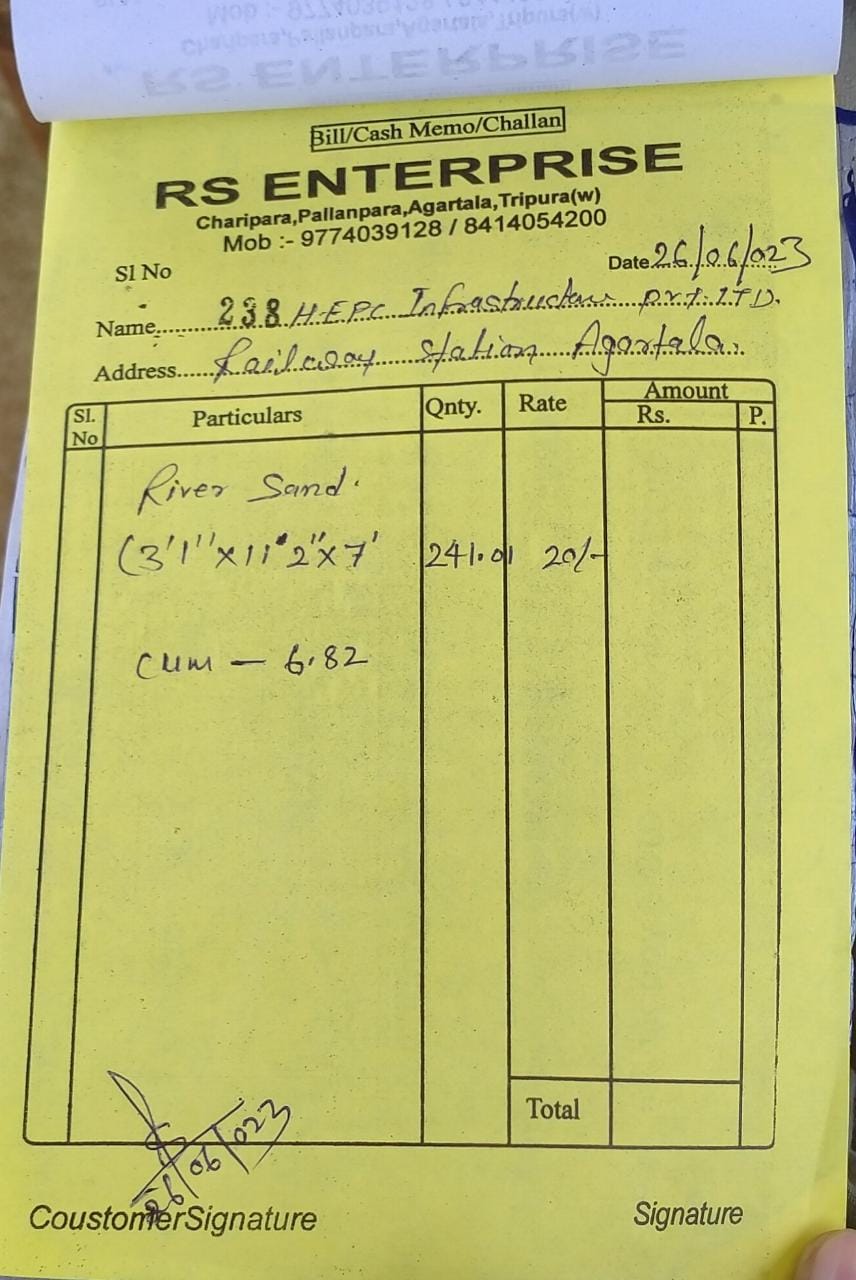 Bill/Cash Memo/Challan
RS ENTERPRISE
Charipara,Pallanpara,Agartala,Tripura(w)
Mob :- 9774039128 / 8414054200
Sl No
Date 26/06/023
238
Name H.EPC Infrastructure Pvt. LTD.
Address Railway Station Agartala.
Sl. No Particulars Qnty. Rate Amount Rs. P.
River Sand.
(3'1"x11'2"x7' 241.01 20/-
CUM — 6.82
Total
26/06/023
CoustomerSignature Signature